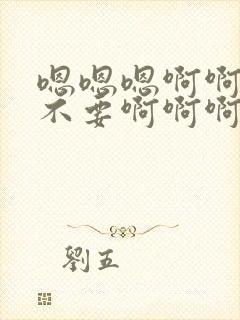 嗯嗯嗯啊啊
不要啊啊啊
劉五